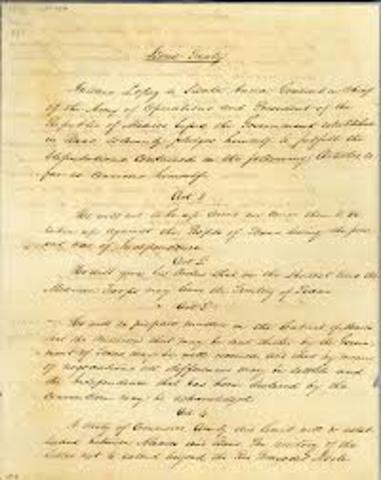 Secret Treaty
Antonio Lopez de Santa Anna General in Chief
of the Army of Operations and President of the
Republic of Mexico before the Government established
in Texas solemnly pledges himself to fulfill the
Stipulations contained in the following Articles so
far as concerns himself
Art 1
He will not take up arms nor cause them to be
taken up against the People of Texas during the pres
ent War of Independence
Art 2
He will give his Orders that in the shortest time the
Mexican Troops may leave the Territory of Texas
Art 3
He will so prepare matters in the Cabinet of Mexico
that the Mission that may be sent thither by the Govern
ment of Texas may be well received and that by means
of negotiations all differences may be settled and
the Independence that has been declared by the
Convention may be acknowledged
Art 4
A treaty of Commerce Amity and limits will be estab
lished between Mexico and Texas the territory of the
latter not to extend beyond the Rio Bravo del Norte